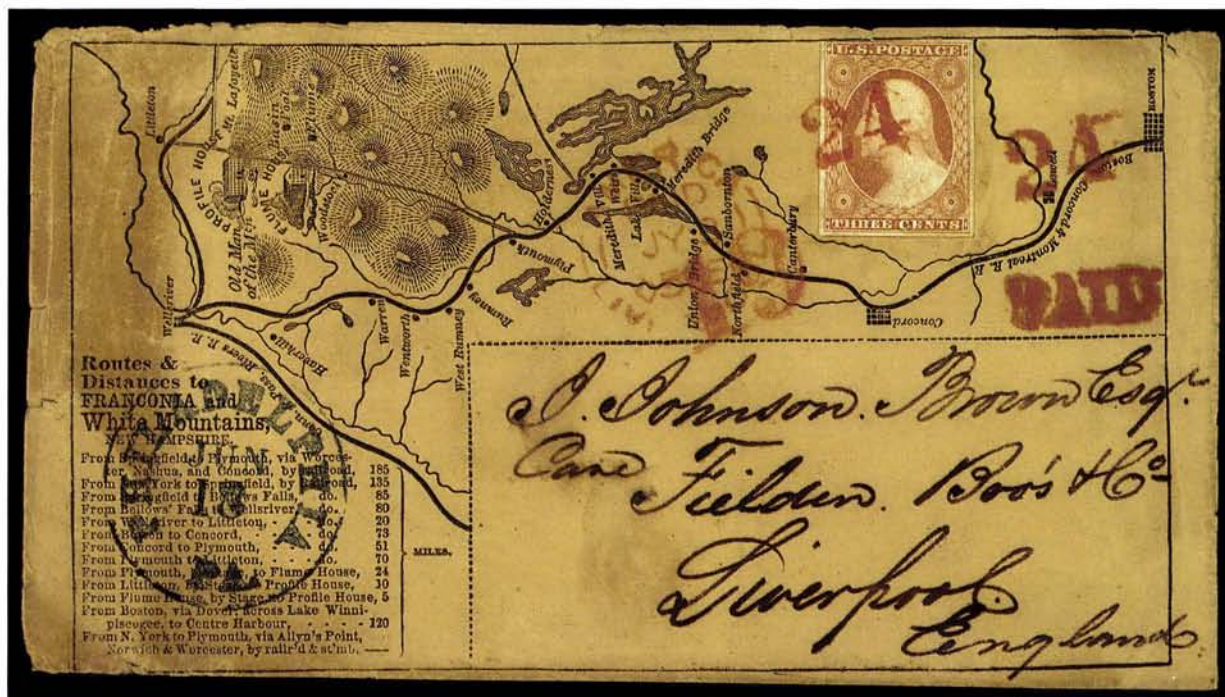 U.S. POSTAGE
THREE CENTS
24
24
PAID
Littleton
Mt. Lafayette
PROFILE HOUSE
Old Man
of the Mtn
FLUME HOUSE
Basin
Pool
Flume
Woodstock
Wellsriver
Haverhill
Warren
Wentworth
West Rumney
Rumney
Plymouth
Holderness
Meredith Vill.
Lake Vill.
Meredith Bridge
Union Bridge
Sanbornton
Northfield
Canterbury
Concord
Concord & Montreal R. R.
Lowell
Boston
BOSTON
Conn. & Pass. Rivers R. R.
Routes &
Distances to
FRANCONIA and
White Mountains,
NEW HAMPSHIRE.
From Springfield to Plymouth, via Worces-
ter, Nashua, and Concord, by railroad, 185
From New York to Springfield, by Railroad, 135
From Springfield to Bellows Falls, do. 85
From Bellows' Falls to Wellsriver, do. 80
From Wellsriver to Littleton, - - do. 20
From Boston to Concord, - - - do. 73
From Concord to Plymouth, - - - do. 51
From Plymouth to Littleton, - - - do. 70
From Plymouth, to Flume House, 24
From Littleton, by Stage to Profile House, 10
From Flume House, by Stage, to Profile House, 5
From Boston, via Dover, across Lake Winni-
piseogee, to Centre Harbour, - - - - 120
From N. York to Plymouth, via Allyn's Point,
Norwich & Worcester, by railr'd & st'mb. ——
MILES.
PHILADELPHIA
JUN
16
Pa.
J. Johnson Brown Esqr.
Care Fielden Bros & Co
Liverpool
England